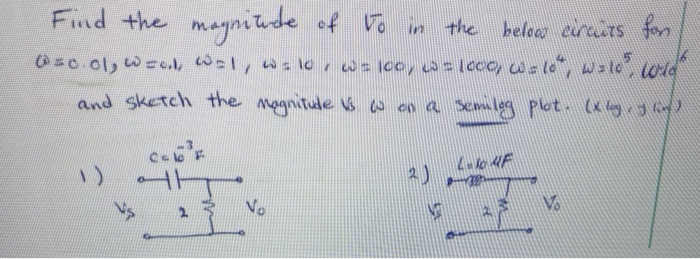 Find the magnitude of Vo in the below circuits for
ω=0.01, ω=0.1, ω=1, ω=10, ω=100, ω=1000, ω=10⁴, ω=10⁵, ω=10⁶
and sketch the magnitude vs ω on a semilog plot. (x log, y lin)
C=10⁻³F
L=10 MF
1)
2)
Vs 2 Vo
Vs 2 Vo